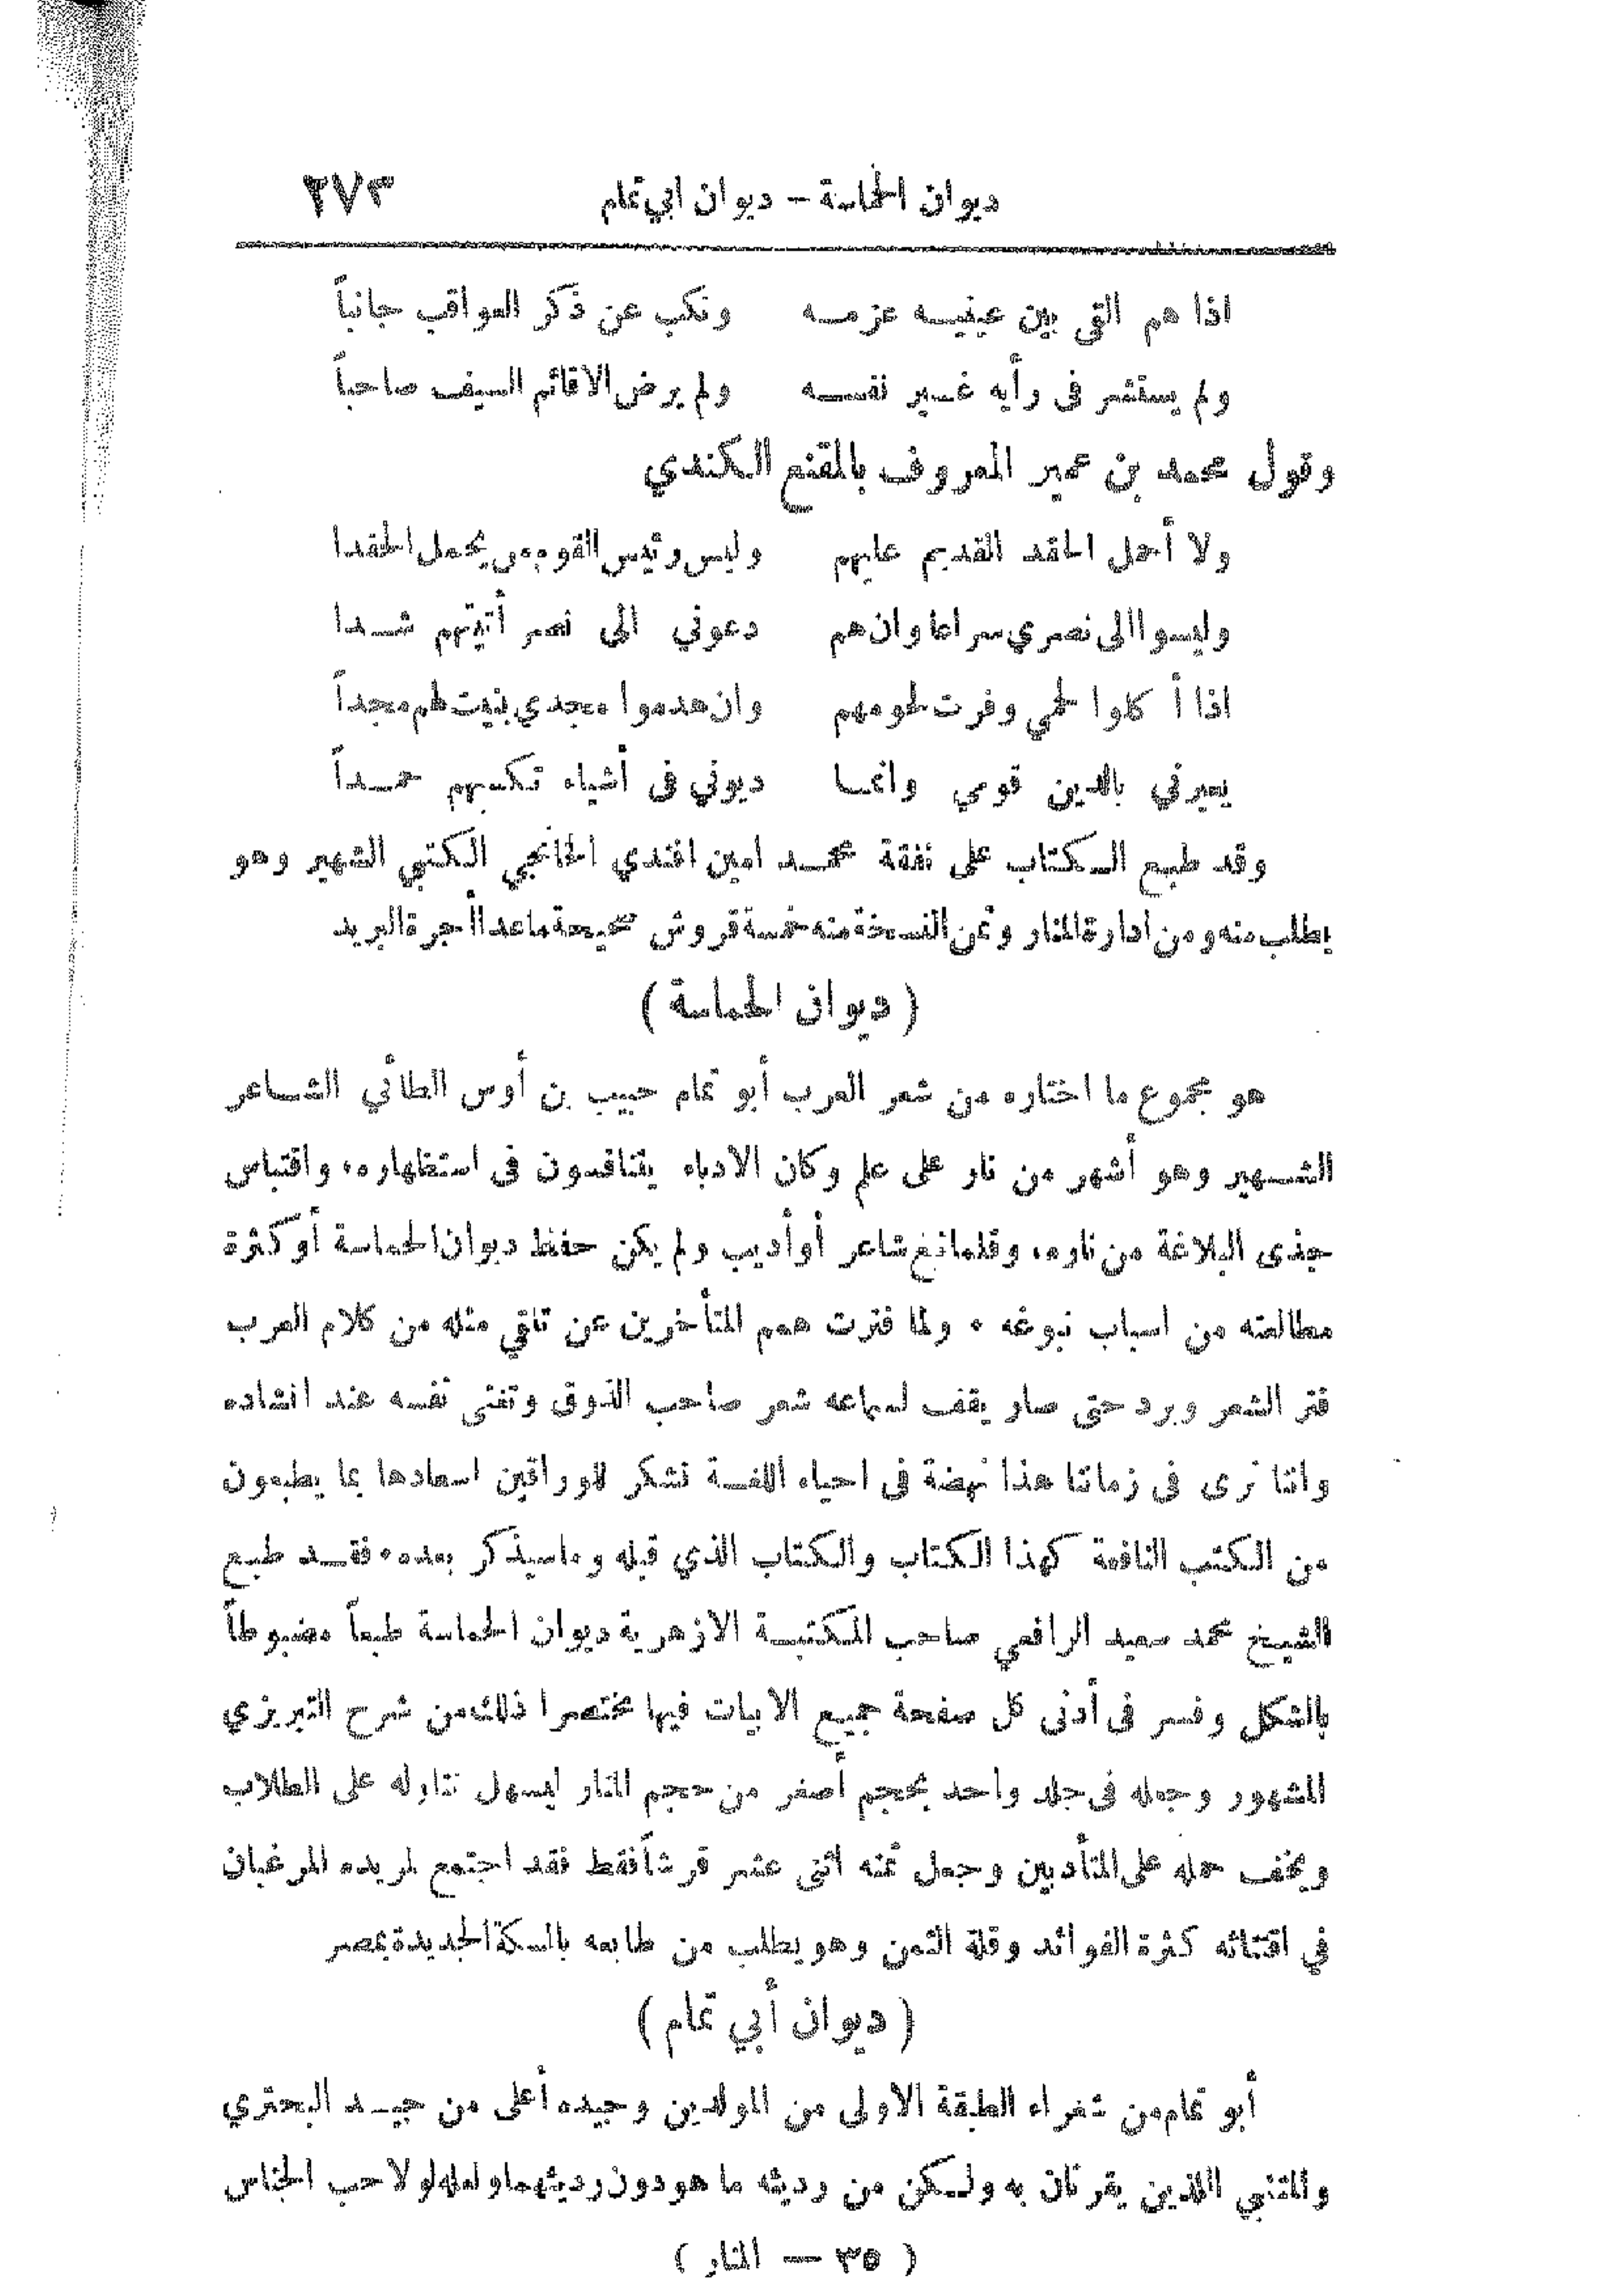 ديوان الحماسة – ديوان ابي تمام ٢٧٣
اذا هم القى بين عينيه عزمه ونكب عن ذكر العواقب جانباً
ولم يستشر فى رأيه غير نفسه ولم يرض الا قائم السيف صاحباً
وقول محمد بن عمير المعروف بالمقنع الكندي
ولا أحمل الحقد القديم عليهم وليس رئيس القوم من يحمل الحقدا
وليسوا الى نصري سراعا وان هم دعوني الى نصر أتيتهم شدا
اذا أكلوا لحمي وفرت لحومهم وان هدموا مجدي بنيت لهم مجداً
يعيرني بالدين قومي وانما ديوني فى أشياء تكسبهم حمداً
وقد طبع الكتاب على نفقة محمد امين افندي الخانجي الكتبي الشهير وهو
يطلب منه ومن ادارة المنار وثمن النسخة منه خمسة قروش صحيحة ماعدا أجرة البريد
( ديوان الحماسة )
هو مجموع ما اختاره من شعر العرب أبو تمام حبيب بن أوس الطائي الشاعر
الشهير وهو أشهر من نار على علم وكان الادباء يتنافسون فى استظهاره، واقتباس
جذى البلاغة من ناره، وقلما نبغ شاعر أو أديب ولم يكن حفظ ديوان الحماسة أو كثرة
مطالعته من اسباب نبوغه ٠ ولما فترت همم المتأخرين عن تلقي مثله من كلام العرب
فتر الشعر وبرد حتى صار يقف لسماعه شعر صاحب الذوق وتغثى نفسه عند انشاده
واننا نرى فى زماننا هذا نهضة فى احياء اللغة نشكر للوراقين اسعادها بما يطبعون
من الكتب النافعة كهذا الكتاب والكتاب الذي قبله وماسيذكر بعده، فقد طبع
الشيخ محمد سعيد الرافعي صاحب المكتبة الازهرية ديوان الحماسة طبعاً مضبوطاً
بالشكل وفسر فى أدنى كل صفحة جميع الابيات فيها مختصرا ذلك من شرح التبريزي
المشهور وجعله فى جلد واحد بحجم أصغر من حجم المنار ليسهل تناوله على الطلاب
ويخف حمله على المتأدبين وجعل ثمنه اثنى عشر قرشاً فقط فقد اجتمع لمريده المرغبان
في اقتنائه كثرة الفوائد وقلة الثمن وهو يطلب من طابعه بالسكة الجديدة بمصر
( ديوان أبي تمام )
أبو تمام من شعراء الطبقة الاولى من المولدين وجيده أعلى من جيد البحتري
والمتنبي اللذين يقرنان به ولكن من رديئه ما هو دون رديئهما ولعله لولا حب الجناس
( ٣٥ — المنار )